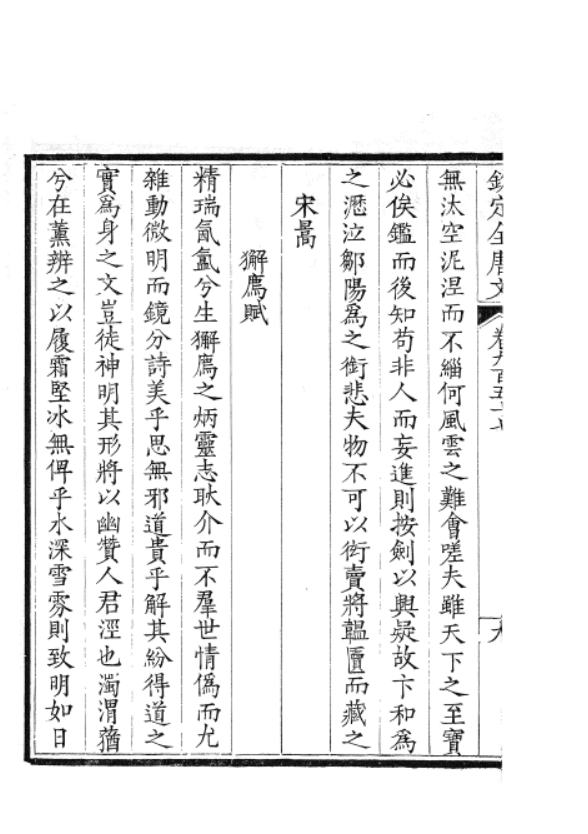 欽定全唐文 卷九百五十七 九
無汰空泥涅而不緇何風雲之難會嗟夫雖天下之至寶
必俟鑑而後知苟非人而妄進則按劍以興疑故卞和為
之瀝泣鄒陽為之銜悲夫物不可以衒賣將韞匵而藏之
宋暠
獬廌賦
精瑞氤氳兮生獬廌之炳靈志耿介而不羣世情偽而尤
雜動微明而鏡分詩美乎思無邪道貴乎解其紛得道之
實為身之文豈徒神明其形將以幽贊人君涇也濁渭蕕
兮在薰辨之以履霜堅冰無俾乎水深雪雰則致明如日